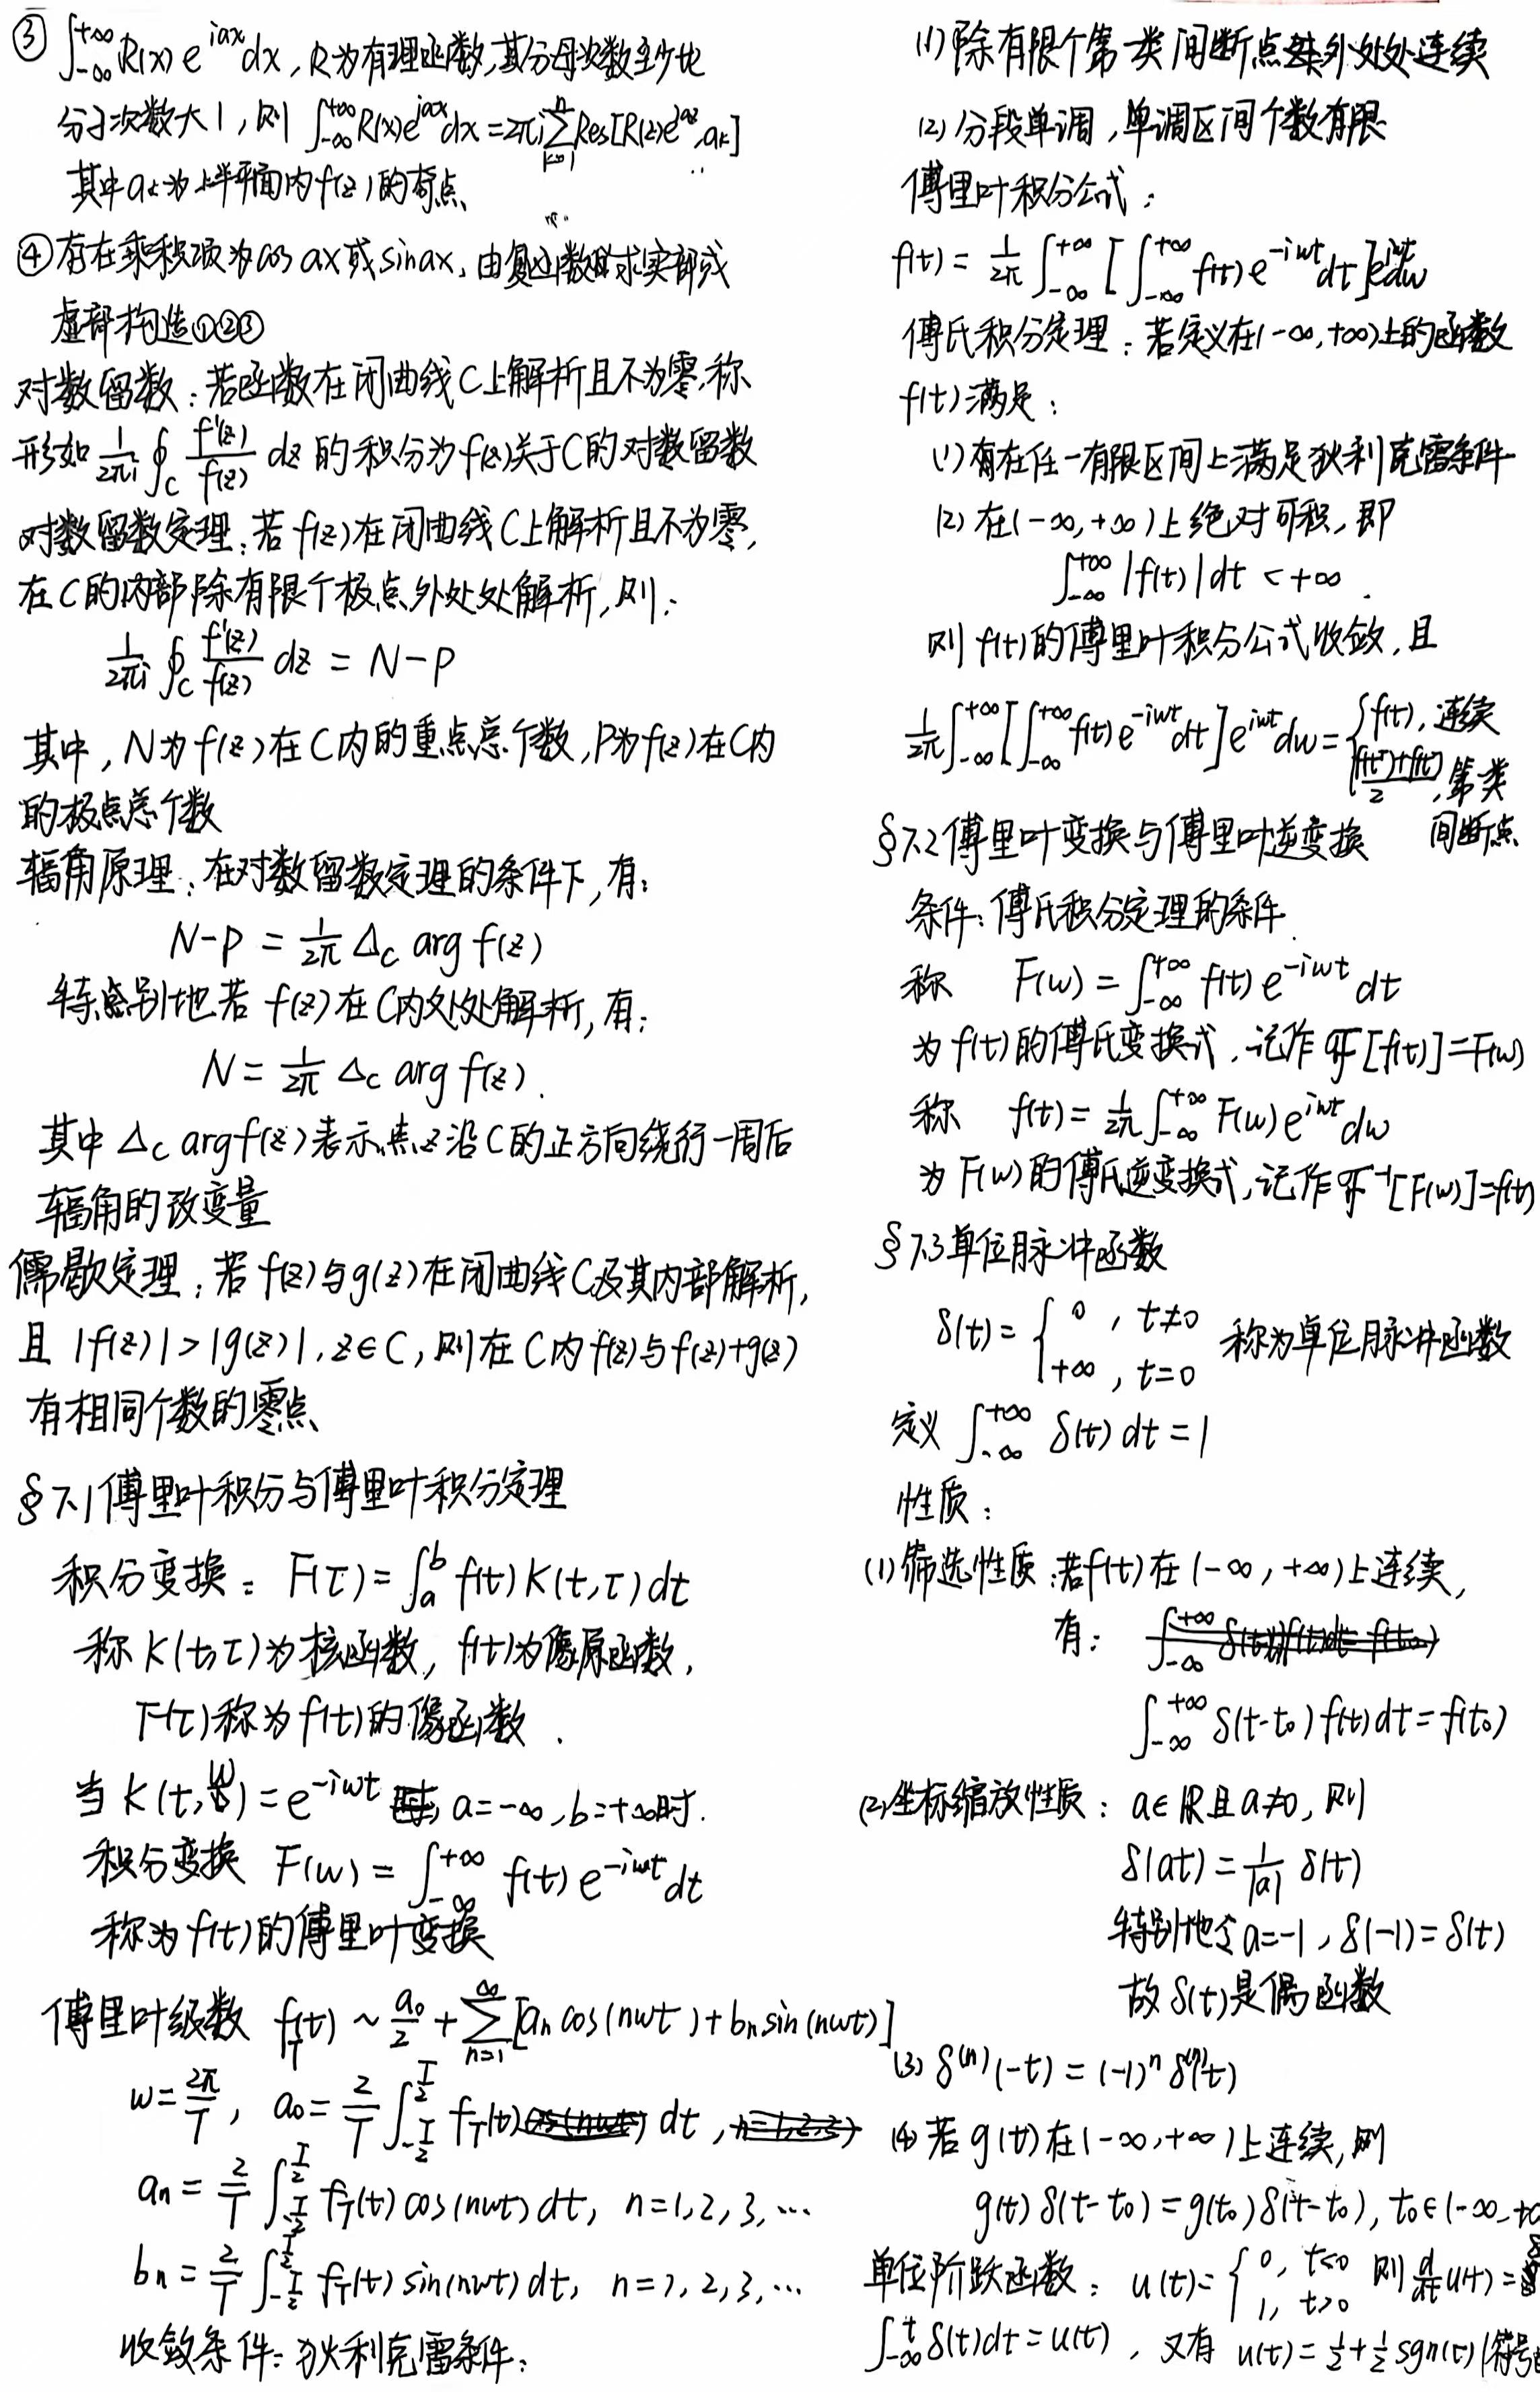 ③ ∫_{-∞}^{+∞} R(x) e^{iax} dx, R为有理函数,其分母次数至少比
分子次数大1, 则 ∫_{-∞}^{+∞} R(x)e^{iax}dx = 2πi∑_{k=1}^{n} Res[R(z)e^{iaz}, a_k]
其中a_k为上半平面内f(z)的奇点
④存在乘积项为cos ax或sin ax, 由复函数求实部或
虚部构造①②③
对数留数:若函数在闭曲线C上解析且不为零,称
形如 \frac{1}{2πi} ∮_C \frac{f'(z)}{f(z)} dz 的积分为f(z)关于C的对数留数
对数留数定理:若f(z)在闭曲线C上解析且不为零,
在C的内部除有限个极点外处处解析,则:
\frac{1}{2πi} ∮_C \frac{f'(z)}{f(z)} dz = N-P
其中, N为f(z)在C内的重点总个数, P为f(z)在C内
的极点总个数
辐角原理:在对数留数定理的条件下,有:
N-P = \frac{1}{2π} Δ_C arg f(z)
特别地若 f(z)在C内处处解析,有:
N = \frac{1}{2π} Δ_C arg f(z).
其中 Δ_C arg f(z)表示点z沿C的正方向绕行一周后
辐角的改变量
儒歇定理:若f(z)与g(z)在闭曲线C及其内部解析,
且 |f(z)|>|g(z)|, z∈C, 则在C内f(z)与f(z)+g(z)
有相同个数的零点
§7.1傅里叶积分与傅里叶积分定理
积分变换: F(τ) = ∫_a^b f(t) K(t,τ) dt
称K(t,τ)为核函数, f(t)为像原函数,
F(τ)称为f(t)的像函数.
当 K(t,w) = e^{-iwt} a=-∞, b=+∞时.
积分变换 F(w) = ∫_{-∞}^{+∞} f(t) e^{-iwt} dt
称为f(t)的傅里叶变换
傅里叶级数 f_T(t) ~ \frac{a_0}{2} + ∑_{n=1}^{∞} [a_n cos(nwt) + b_n sin(nwt)]
w = \frac{2π}{T}, a_0 = \frac{2}{T} ∫_{-\frac{T}{2}}^{\frac{T}{2}} f_T(t) dt,
a_n = \frac{2}{T} ∫_{-\frac{T}{2}}^{\frac{T}{2}} f_T(t) cos(nwt) dt, n=1,2,3,…
b_n = \frac{2}{T} ∫_{-\frac{T}{2}}^{\frac{T}{2}} f_T(t) sin(nwt) dt, n=1,2,3,…
收敛条件:狄利克雷条件:
(1)除有限个第一类间断点外处处连续
(2)分段单调,单调区间个数有限
傅里叶积分公式:
f(t) = \frac{1}{2π} ∫_{-∞}^{+∞} [∫_{-∞}^{+∞} f(t) e^{-iwt} dt] e^{iwt} dw
傅氏积分定理:若定义在(-∞,+∞)上的函数
f(t)满足:
(1)在任一有限区间上满足狄利克雷条件
(2)在(-∞,+∞)上绝对可积,即
∫_{-∞}^{+∞} |f(t)| dt < +∞.
则f(t)的傅里叶积分公式收敛,且
\frac{1}{2π} ∫_{-∞}^{+∞} [∫_{-∞}^{+∞} f(t) e^{-iwt} dt] e^{iwt} dw = { f(t), 连续
\frac{f(t^-)+f(t^+)}{2}, 第一类
间断点
§7.2傅里叶变换与傅里叶逆变换
条件:傅氏积分定理的条件.
称 F(w) = ∫_{-∞}^{+∞} f(t) e^{-iwt} dt
为f(t)的傅氏变换式,记作 ℱ[f(t)]=F(w)
称 f(t) = \frac{1}{2π} ∫_{-∞}^{+∞} F(w) e^{iwt} dw
为F(w)的傅氏逆变换式,记作 ℱ^{-1}[F(w)]=f(t)
§7.3单位脉冲函数
δ(t) = { 0, t≠0
+∞, t=0 称为单位脉冲函数
定义 ∫_{-∞}^{+∞} δ(t) dt = 1
性质:
(1)筛选性质:若f(t)在(-∞,+∞)上连续,
有:
∫_{-∞}^{+∞} δ(t-t_0) f(t) dt = f(t_0)
(2)坐标缩放性质: a∈ℝ且a≠0, 则
δ(at) = \frac{1}{|a|} δ(t)
特别地令a=-1, δ(-1)=δ(t)
故δ(t)是偶函数
(3) δ^{(n)}(-t) = (-1)^n δ^{(n)}(t)
(4)若g(t)在(-∞,+∞)上连续,则
g(t) δ(t-t_0) = g(t_0) δ(t-t_0), t_0∈(-∞,+∞
单位阶跃函数: u(t) = { 0, t<0
1, t>0 则 \frac{d}{dt} u(t) =
∫_{-∞}^{t} δ(t)dt = u(t), 又有 u(t) = \frac{1}{2} + \frac{1}{2} sgn(t) (符号